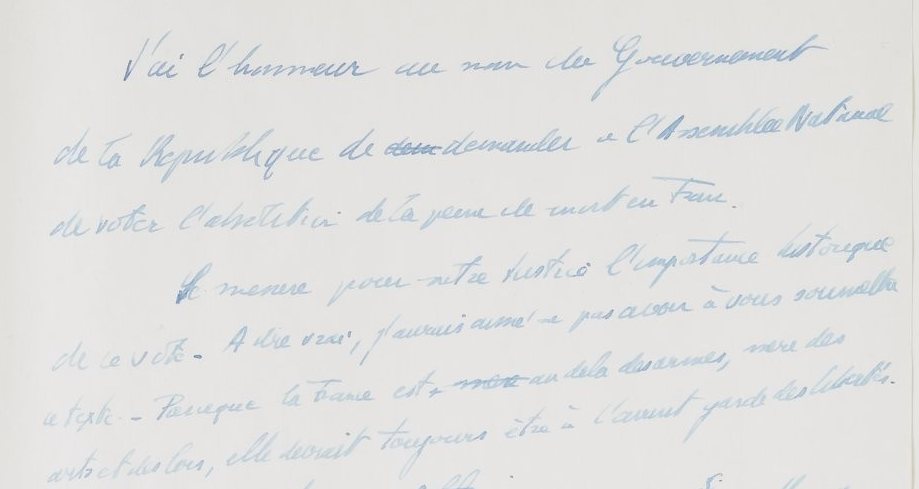 J'ai l'honneur au nom du Gouvernement
de la République de dem demander à l'Assemblée Nationale
de voter l'abolition de la peine de mort en France.
Je mesure pour notre Justice l'importance historique
de ce vote. A dire vrai, j'aurais aimé ne pas avoir à vous soumettre
ce texte. - Parce que la France est, mère au delà des armes, mère des
arts et des lois, elle devrait toujours être à l'avant garde des libertés.